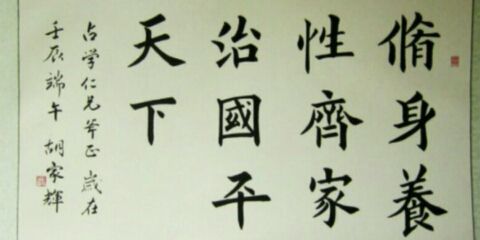 脩身養
性齊家
治國平
天下
占学仁兄斧正 歲在
壬辰端午 胡家輝